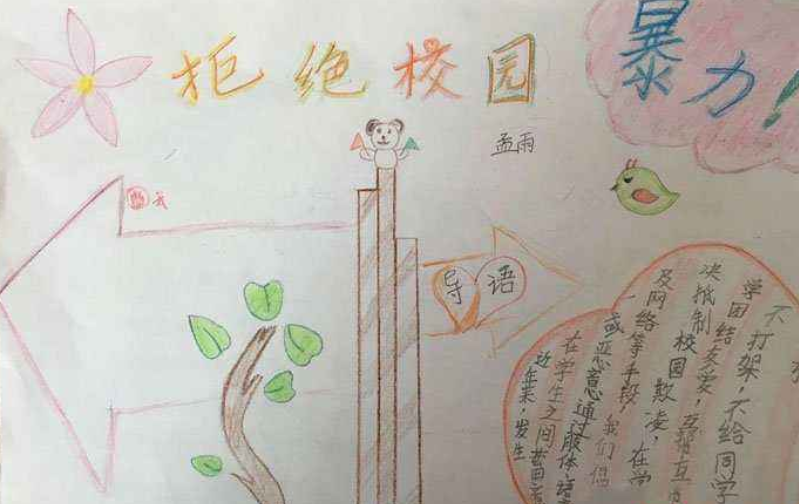 拒绝校园
暴力!
孟雨
导语
近年来，发生
在学生之间蓄
或恶意通过肢体、
及网络等手段，我们倡
决抵制校园欺凌，在学
学团结友爱，互帮互
不打架，不给同学